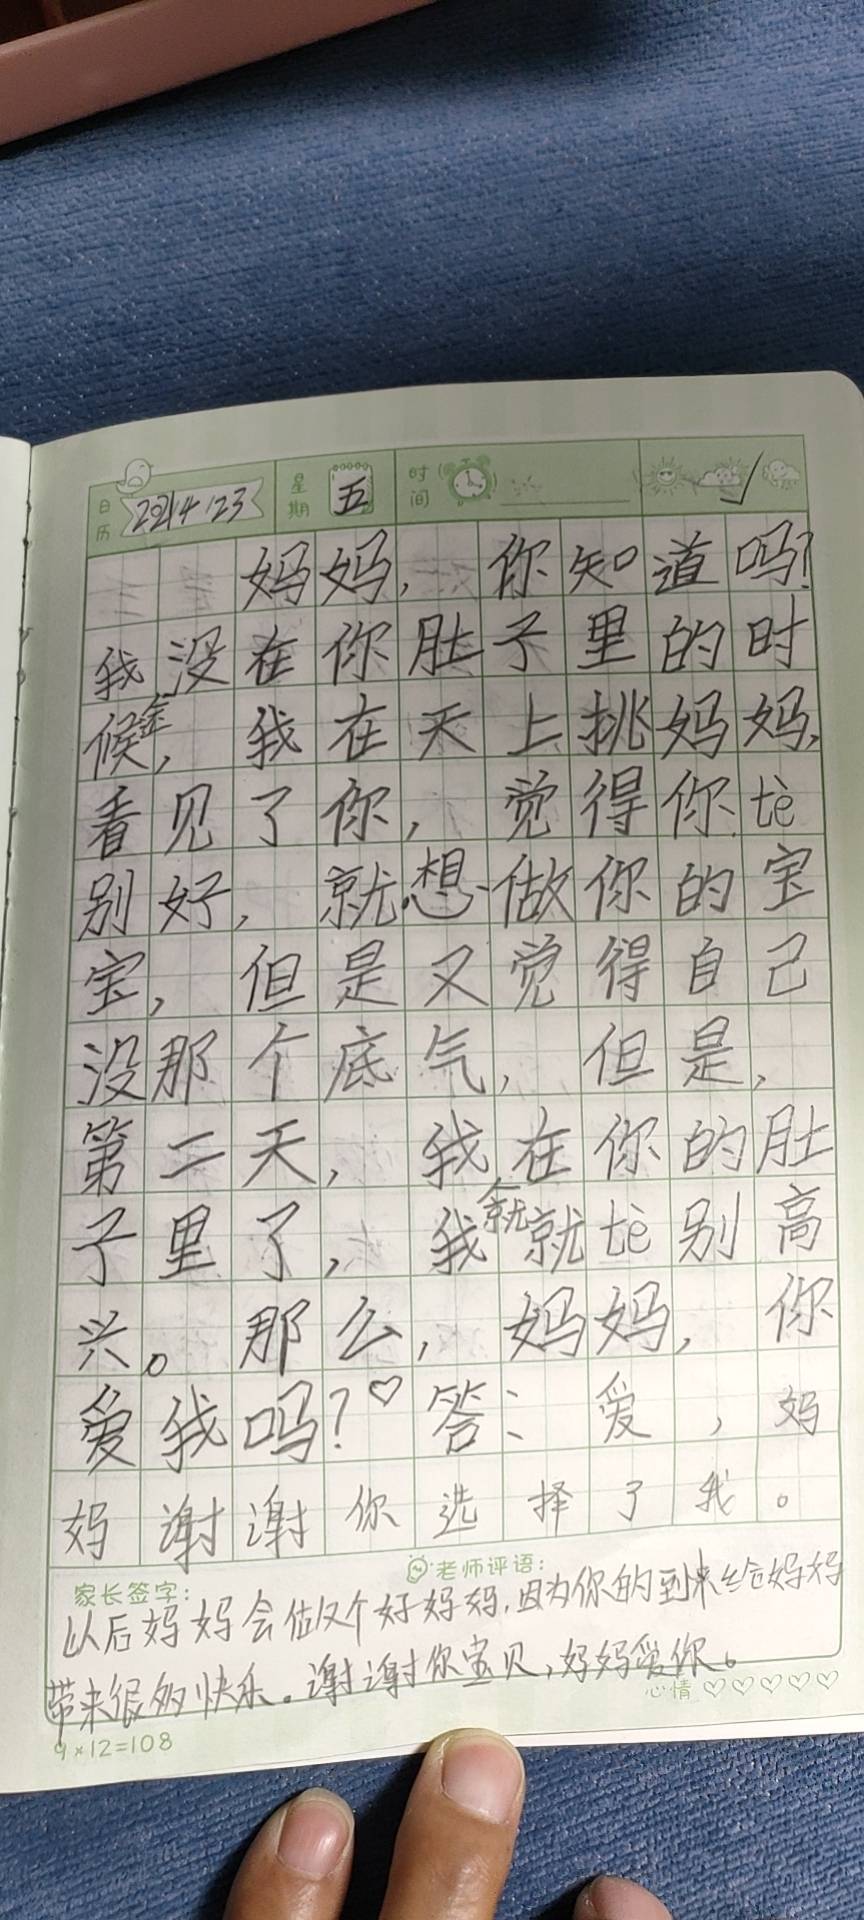 日历 2021 4 23 星期 五 时间
妈妈，你知道吗？
我没在你肚子里的时
候，我在天上挑妈妈，
看见了你，觉得你tè
别好，就想做你的宝
宝，但是又觉得自己
没那个底气，但是，
第二天，我在你的肚
子里了，我就tè别高
兴。那么，妈妈，你
爱我吗？♡答：爱，妈
妈谢谢你选择了我。
家长签字： 老师评语：
以后妈妈会做个好妈妈，因为你的到来给妈妈
带来很多快乐。谢谢你宝贝，妈妈爱你。
心情♡♡♡♡♡
9×12=108